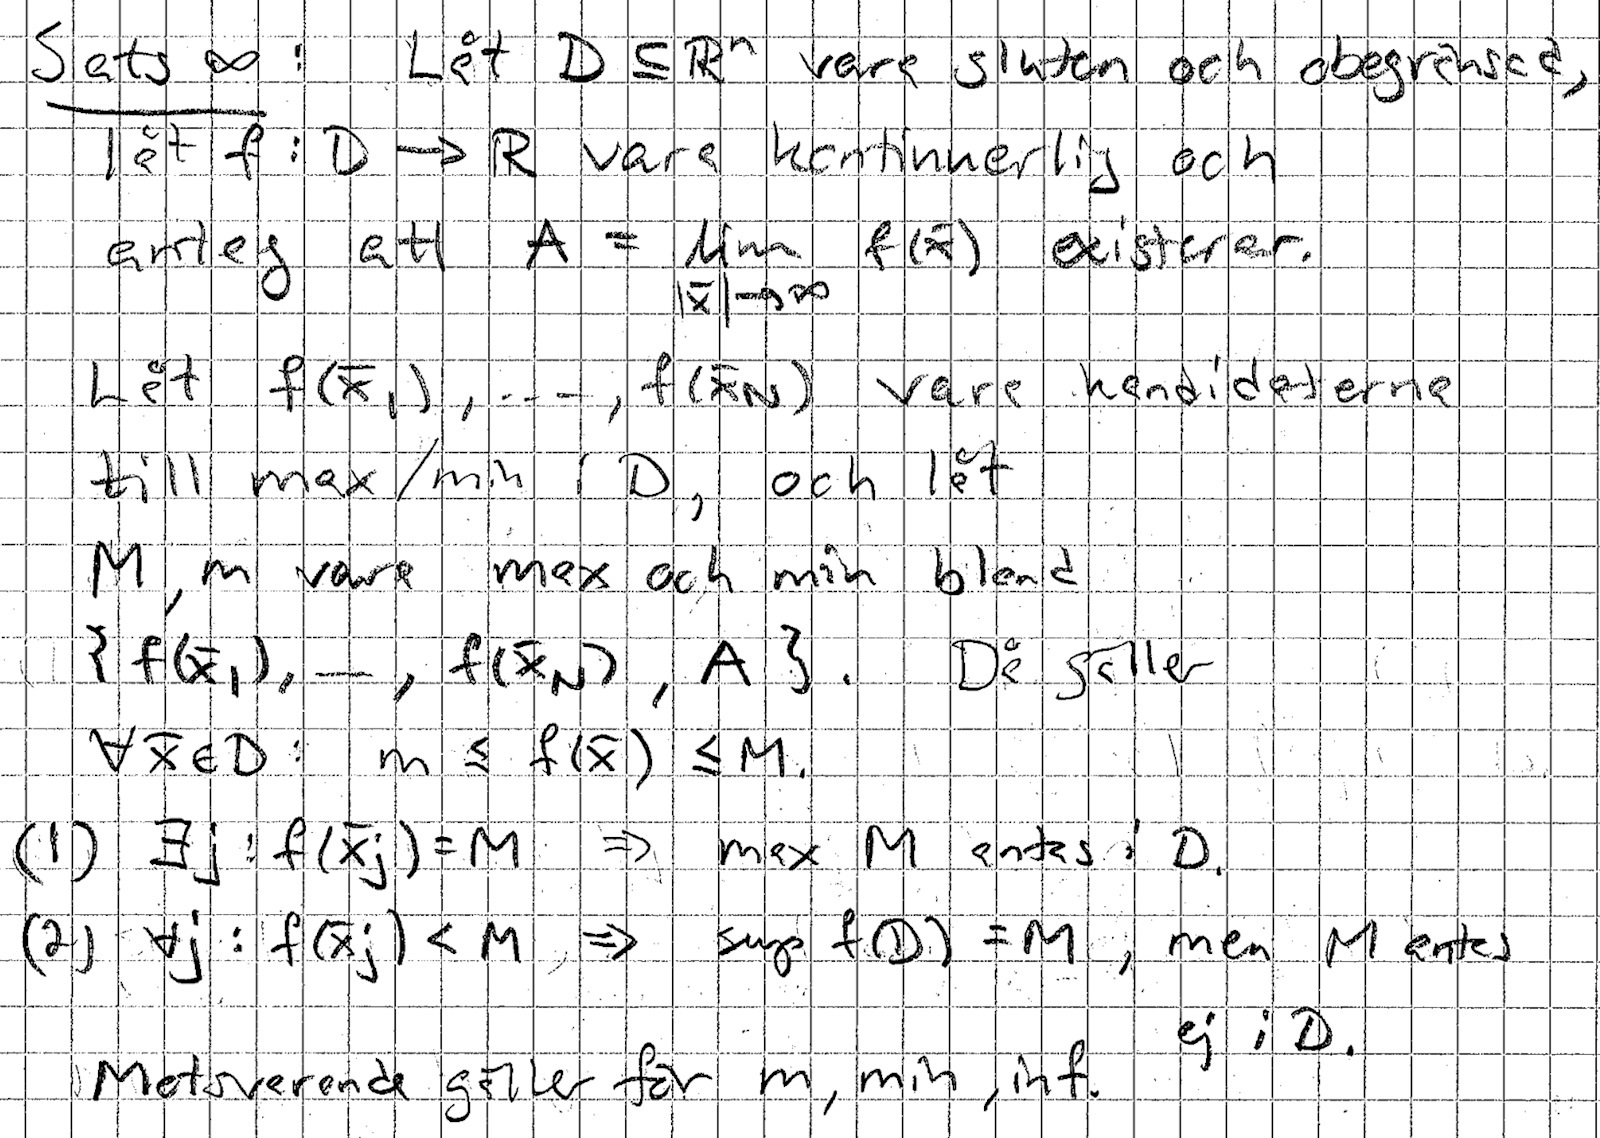 Sats ∞: Låt D ⊆ ℝⁿ vara sluten och obegränsad,
låt f: D → ℝ vara kontinuerlig och
antag att A = lim f(x̄) existerar.
|x̄|→∞
Låt f(x̄₁), ..., f(x̄_N) vara kandidaterna
till max/min i D, och låt
M, m vara max och min bland
{f(x̄₁), ..., f(x̄_N), A}. Då gäller
∀x̄∈D: m ≤ f(x̄) ≤ M.
(1) ∃j: f(x̄ⱼ) = M ⇒ max M antas i D.
(2) ∀j: f(x̄ⱼ) < M ⇒ sup f(D) = M, men M antas
ej i D.
Motsvarande gäller för m, min, inf.